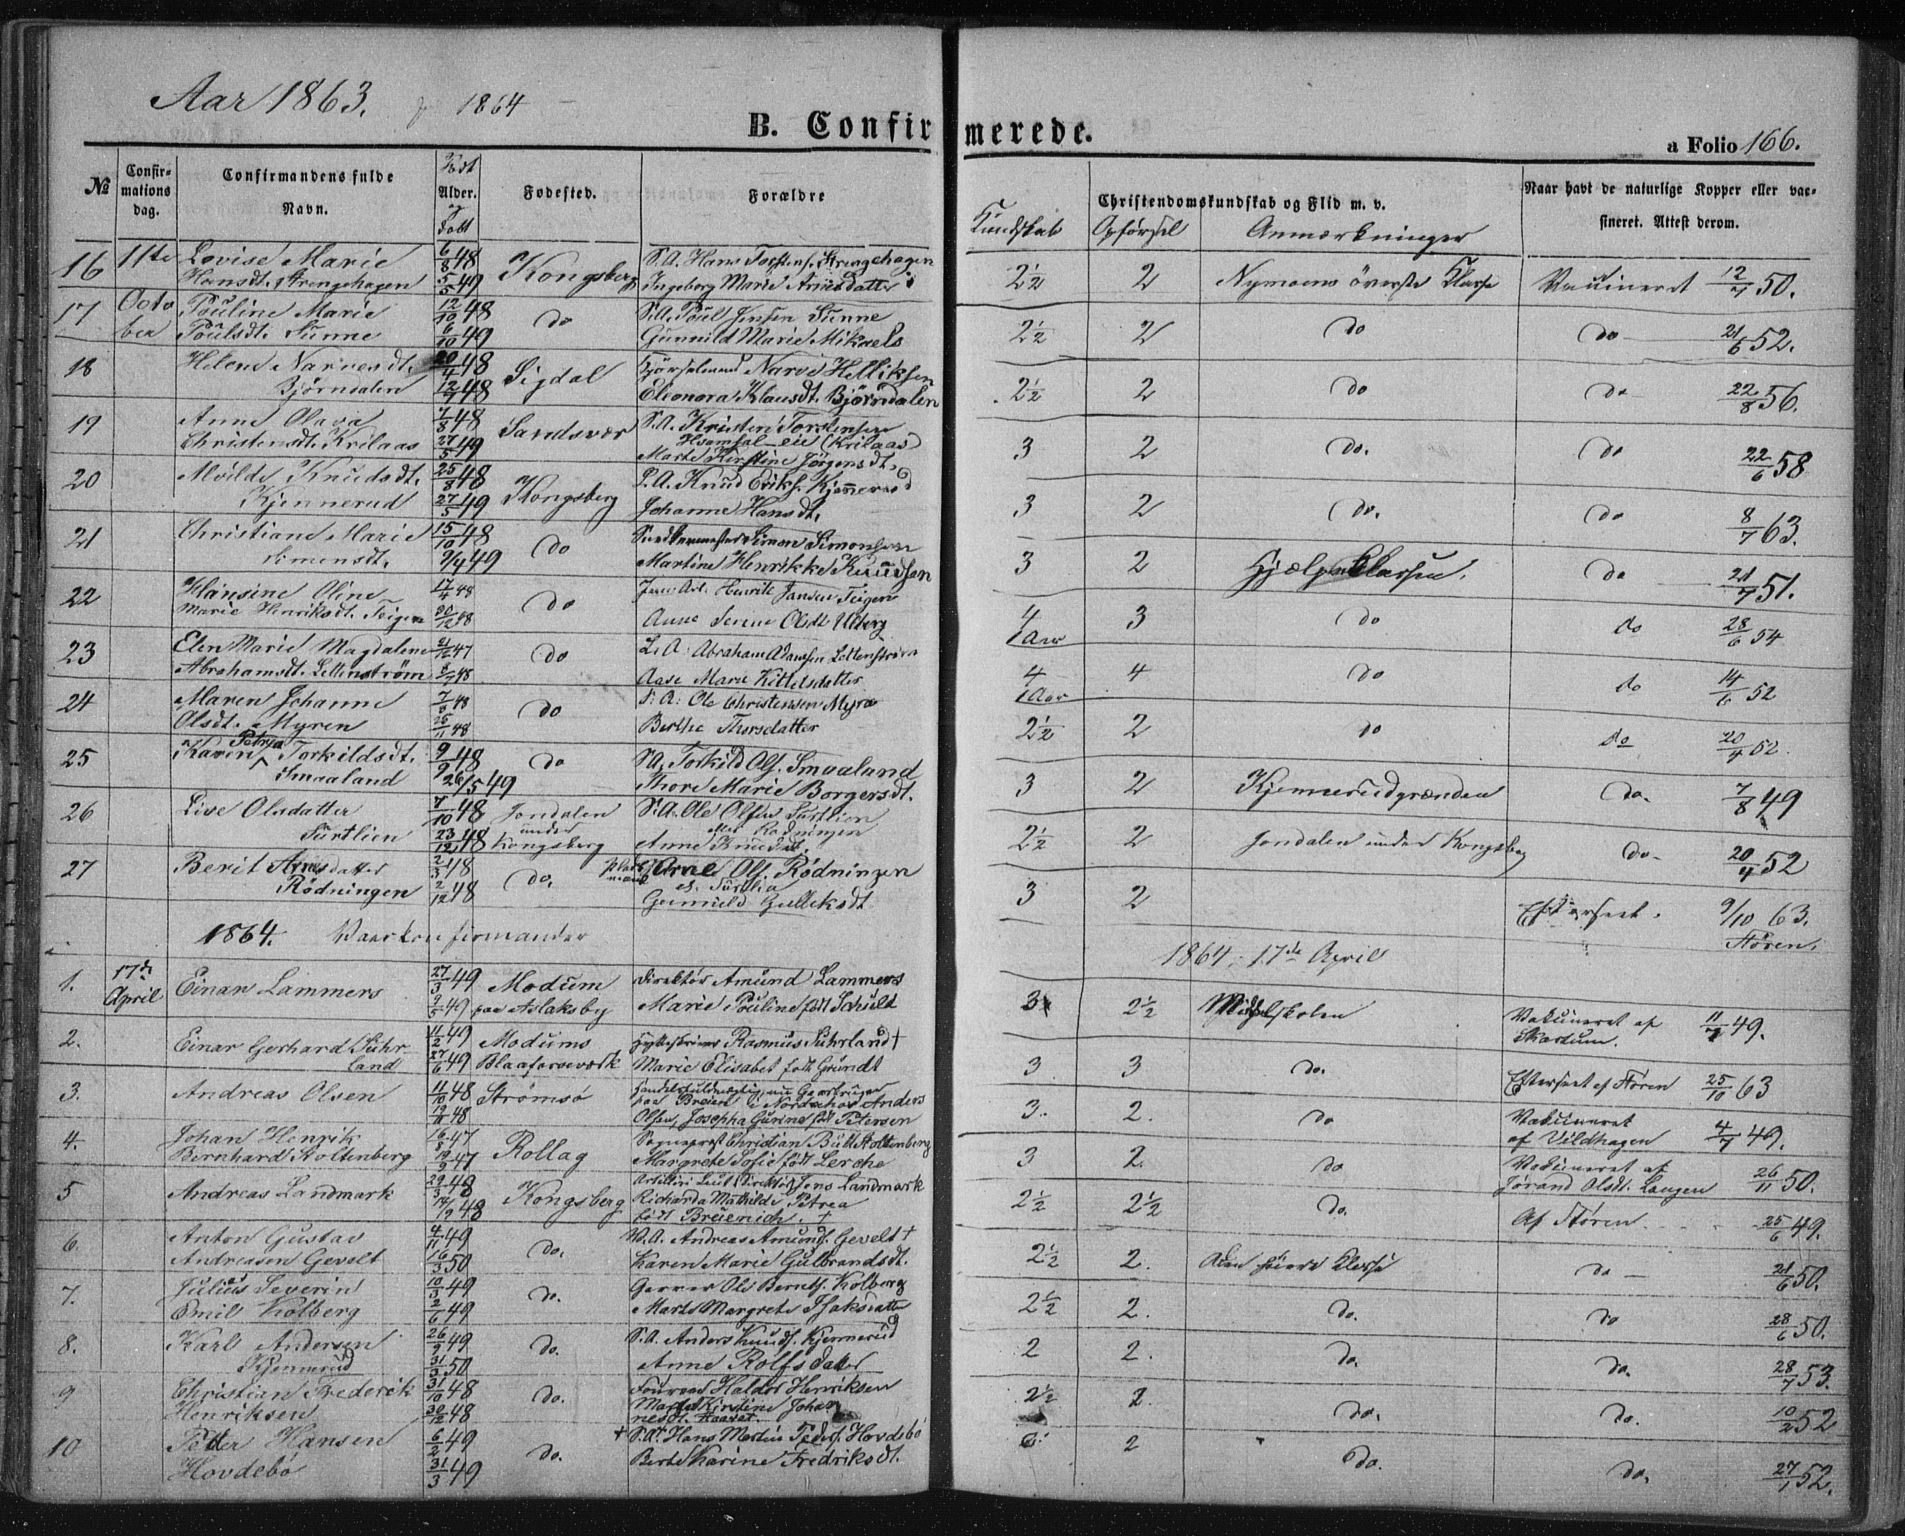 Aar 1863. 1864
B. Confirmerede.
a Folio 166.
№
Confirmations dag.
Confirmandens fulde Navn.
Alder.
Født
Fødested.
Forældre
Christendomskundskab og Flid m. v.
Kundskab Opførsel Anmærkninger
Naar havt de naturlige Kopper eller vaccineret. Attest derom.
16 11te Lovise Marie 6/8 48 Kongsberg S.A. Hans Torstens. Strengehagen 2½ 2 Nymoens överste Klasse 50.
Hansdt. Strengehagen 5/5 49 Ingeborg Marie Arnesdatter
17 Octo Pouline Marie 12/10 48 do S.A. Poul Jensen Sunne 2½ 2 do do 21/6 52.
ber Poulsdt. Sunne 6/10 49 Gunnild Marie Mikaels
18 Helene Narvesdt. 48 Sigdal Narve Helliksen 2½ 2 do do 22/8 56.
Bjørndalen 48 Eleonora Klausdt. Bjørndalen
19 Anne Olava 7/8 48 Sandsvær S.A. Kristen Torstensen 3 2 do. do 22/6 58
Christensdt. Krilaas 27/5 49 eie (Krilaas)
Marte Kirstine Jørgensdt.
20 Mvilde Knudsdt. 25/8 48 Kongsberg S.A. Knud Eriks. Kjennerud 3 2 do. do 8/7 63.
Kjennerud 27/5 49 Johanne Hansdt.
21 Christiane Marie 15/10 48 do Simon Simonsen 3 2 Hjælpeklassen. do 21/7 51.
Simensdt. 9/4 49 Martine Henrikke Knudsen
22 Hansine Oline 17/4 48 do Henrik Jansen Teigen 4 3 do do 28/6 54
Marie Henriksdt. Teigen 48 Anne Olsdt Uberg 1 Aar
23 Elen Marie Magdalene 47 do Abraham Adamsen Lettenstrøm 4 4 do do 14/6 52
Abrahamsdt. Lettenstrøm 48 Aase Marie Kittelsdatter 1 Aar
24 Maren Johanne 7/8 48 do S: A: Ole Christensen Myra 2½ 2 do do 20/4 52.
Olsdt. Myren 26/11 48 Berthe Thorsdatter
25 Karen Petrea Torkildsdt. 9/9 48 do S.A. Torkild Ols. Smaaland 3 2 Kjennerudgrænden do. 7/8 49
Smaaland 26/5 49 Thore Marie Borgersdt.
26 Live Olsdatter 7/10 48 Jondalen S.A. Ole Olsen Surtlien 2½ 2 Jondalen under Kongsberg do- 20/4 52
Surtlien 23/12 48 under Kongsberg eller Rødningen
Anne Knudsdt.
27 Berit Arnesdatter 2/3 48 do. Arne Ols. Rödningen 3 2 Efterseet. 9/10 63.
Rödningen 2/12 48 Gunnild Gulliksdt Støren.
1864. Vaarkonfirmander
1864. 17de April
1. 17de April Einar Lammers 27/3 49 Modum Direktør Amund Lammers 3 2½ Middelskolen Vakcineret af 11/7 49.
49 paa Aslaksby Marie Pouline født Schult Skartum.
2. Einar Gerhard Suhrland 11/2 49 Modums Hytteskriver Rasmus Suhrland † 3 3 do. Efterseet af Støren 25/10 63
27/6 49 Blaafarveværk Marie Elisabet født Grundt
3. Andreas Olsen 11/10 48 Strömsö Handelsfuldmægtig, nu Gaardbruger 3. 2. do Vakcineret 4/7 49.
19/11 48 paa Anders af Vildhagen
Olsen, Josepha Gurine født Petersen
4. Johan Henrik 16/5 47 Rollag Sognepræst Christian Bull Stoltenberg 3 2. do Vakcineret af 26/11 50.
Bernhard Stoltenberg 19/9 47 Margrete Sofie født Lerche Jørand Olsdt. Langen
5 Andreas Landmark 29/3 48 Kongsberg Jens Landmark 2½ 2½ do. Af Støren 25/6 49.
48 Richarda Mathilde Petrea
født Breuenich. †
6. Anton Gustav 4/11 49 do. V.A. Andreas Amunds. Gevelt † 2½ 2. Klasse do 21/6 50.
Andreasen Gevelt 16/3 50 Karen Marie Gulbrandsdt.
7. Julius Severin 10/3 49 do. Garver Ole Bernts. Kolberg 2½ 2. do. do 28/6 50.
Emil Kolberg 2/6 49 Marte Margrete Isaksdatter
8. Karl Andersen 26/9 49 do. S.A. Anders Knuds. Kjennerud 2 2. do. do. 28/7 53.
Kjennerud 31/3 50 Anne Rolfsdatter
9 Christian Frederik 31/10 48 do. Haldor Henriksen 2½ 2. do. do. 10/2 52
Henriksen 30/12 48 Marte Kirstine Johannesdt.
10 Petter Hansen 6/2 49 do. † S.A. Hans Martin Peders. Hovdebö 2 do. do. 27/7 52.
Hovdebö 31/3 49 Berte Karine Fredriksdt.